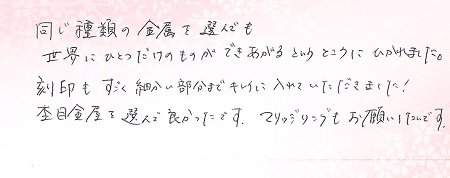 同じ種類の金属を選んでも
世界にひとつだけのものができあがるというところにひかれました。
刻印もすごく細かい部分までキレイに入れていただきました！
杢目金屋を選んで良かったです。マリッジリングもお願いしたいです。